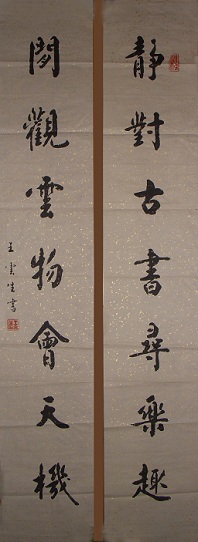 靜對古書尋樂趣
閒觀雲物會天機
王雲生書